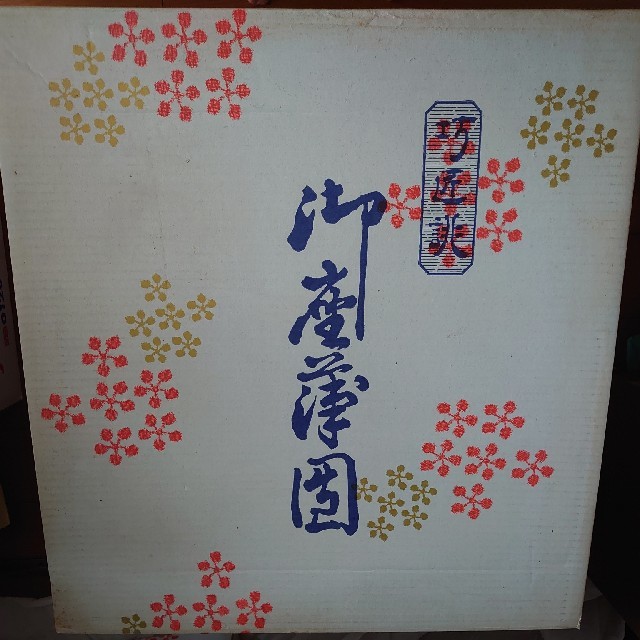 巧匠誂
御座蒲団